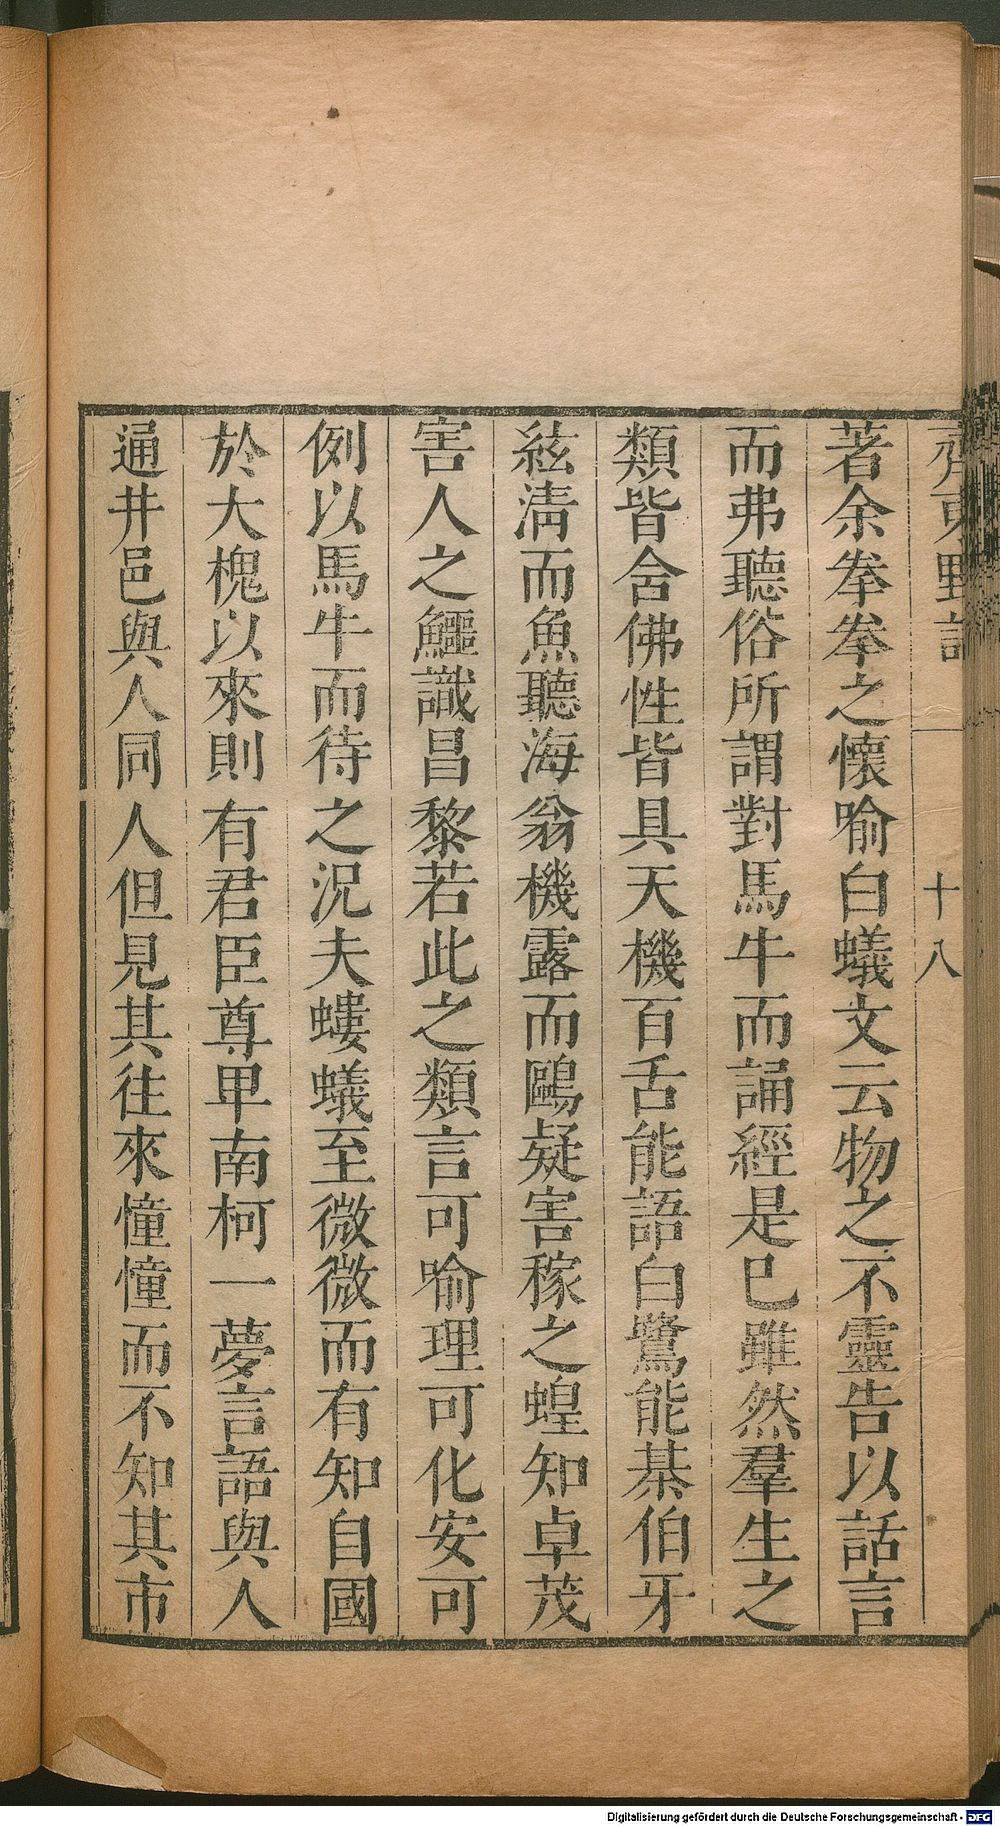 齊東野語
十八
著余拳拳之懷喻白蟻文云物之不靈告以話言
而弗聽俗所謂對馬牛而誦經是巳雖然羣生之
類皆含佛性皆具天機百舌能語白鷺能棊伯牙
絃淸而魚聽海翁機露而鷗疑害稼之蝗知卓茂
害人之鱷識昌黎若此之類言可喻理可化安可
例以馬牛而待之況夫螻蟻至微微而有知自國
於大槐以來則有君臣尊甲南柯一夢言語與人
通井邑與人同人但見其往來憧憧而不知其市
Digitalisierung gefördert durch die Deutsche Forschungsgemeinschaft - DFG